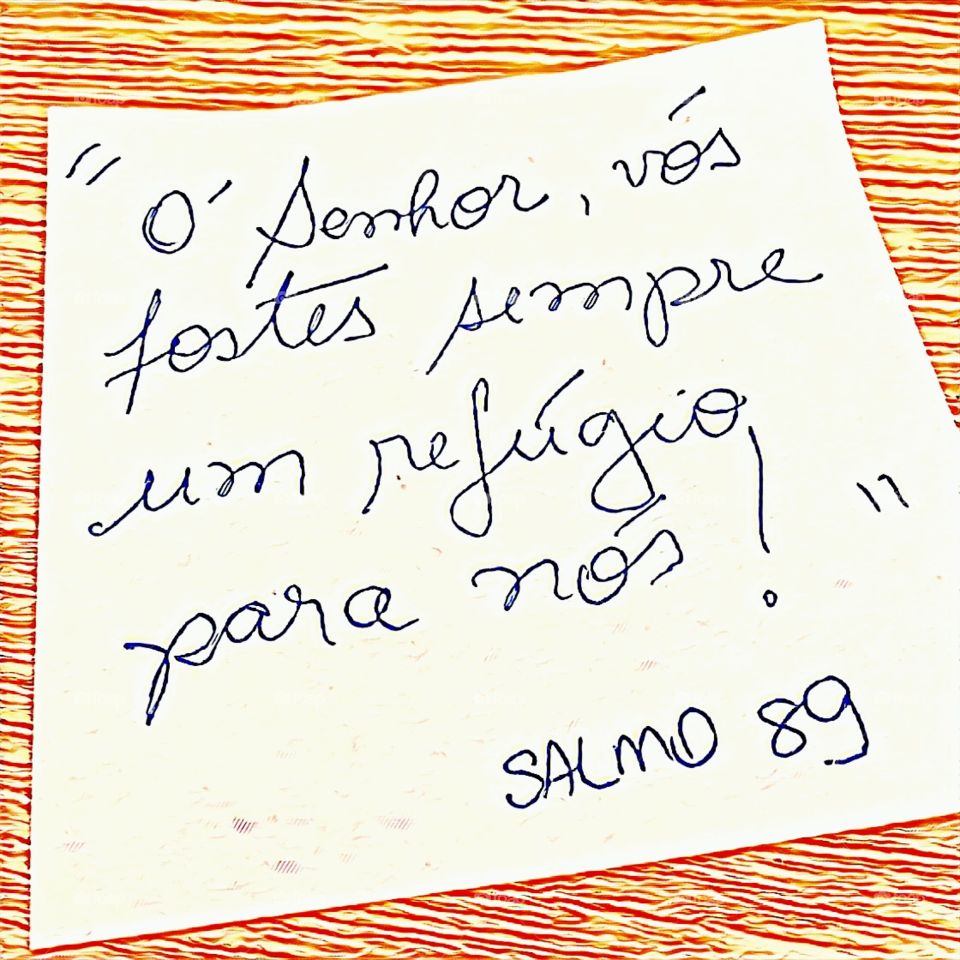 "Ó Senhor, vós
fostes sempre
um refúgio
para nós!"
SALMO 89